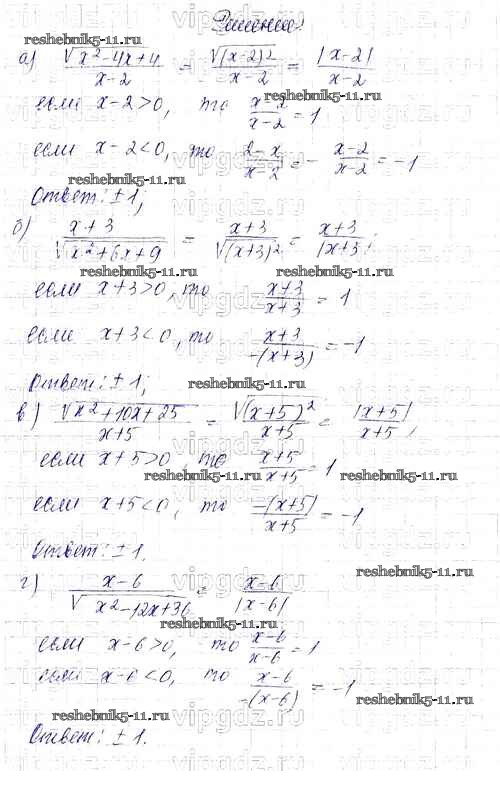 Решение:
reshebnik5-11.ru
а) √(x²-4x+4)/(x-2) = √((x-2)²)/(x-2) = |x-2|/(x-2)
если x-2>0, то (x-2)/(x-2) = 1
если x-2<0, то (2-x)/(x-2) = -(x-2)/(x-2) = -1
reshebnik5-11.ru
Ответ: ±1;
reshebnik5-11.ru
б) (x+3)/√(x²+6x+9) = (x+3)/√((x+3)²) = (x+3)/|x+3|;
reshebnik5-11.ru
если x+3>0, то (x+3)/(x+3) = 1
если x+3<0, то (x+3)/(-(x+3)) = -1
Ответ: ±1;
reshebnik5-11.ru
в) √(x²+10x+25)/(x+5) = √((x+5)²)/(x+5) = |x+5|/(x+5),
если x+5>0, то (x+5)/(x+5) = 1
reshebnik5-11.ru reshebnik5-11.ru
если x+5<0, то (-(x+5))/(x+5) = -1
Ответ: ±1.
reshebnik5-11.ru
г) (x-6)/√(x²-12x+36) = (x-6)/|x-6|
reshebnik5-11.ru
если x-6>0, то (x-6)/(x-6) = 1
если x-6<0, то (x-6)/(-(x-6)) = -1
reshebnik5-11.ru
reshebnik5-11.ru
Ответ: ±1.